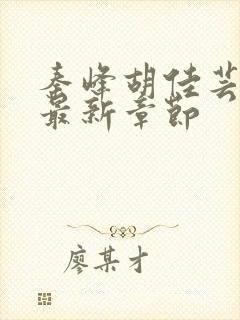 秦峰胡佳芸
最新章节
廖某才